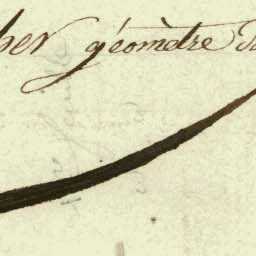 ber géomètre